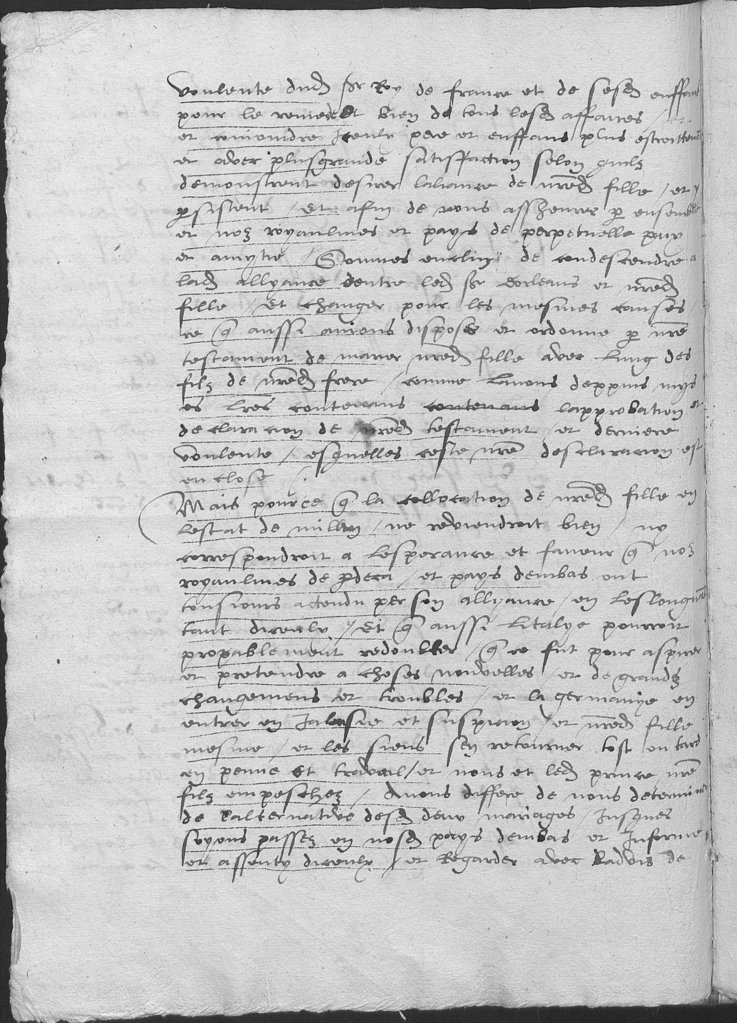 voulente dud sr Roy de france et de sesd enffans
pour le remede et bien de tous lesd affaires /
et conioindre iceulx pere et enffans plus estroittemt
et aver plusgrande satisffaction selon quilz
demonstrent desirer laliance de nred fille / et y
psistent / Et afin de nous asseheurer p ensemble
et noz royaulmes et pays de perpetuelle paix
et amytie / Sommes enclins de condescendre a
lad allyance dentre led sr dorleans et nred
fille / Et changer pour les mesmes causes
ce q aussi auions dispose et ordonne p nre
testament de marier nred fille avec lung des
filz de nred frere / comme lauons deppuis mys
es lres contenans contenans lapprobation et
declaracion de nred testament et derniere
voulente / esquelles ceste nre desclaracion est
enclose
Mais pource q la collocation de nred fille en
lestat de millan / ne reviendroit bien / ny
correspondroit a lesperance et faveur q noz
royaulmes de pdeca / et pays dembas ont
tousiours actendu per son allyance / en leslongnt
tant diceulx / Et q aussi litalye pourroit
propablement redoubter / q ce fut pour aspirer
et pretendre a choses nouvelles / et de grandz
changemens et troubles / et la germanye en
entrer en jalousie et suspicion / et nred fille
mesme / et les siens sen retourner tost ou tard
en penne et travail / et nous et led prince nre
filz empeschez / Avons differe de nous determiner
de lalternative desd deux mariages / Jusques
soyons passez en nosd pays dembas et Informe
et assenty diceulx / et Regarder avec ladvis de